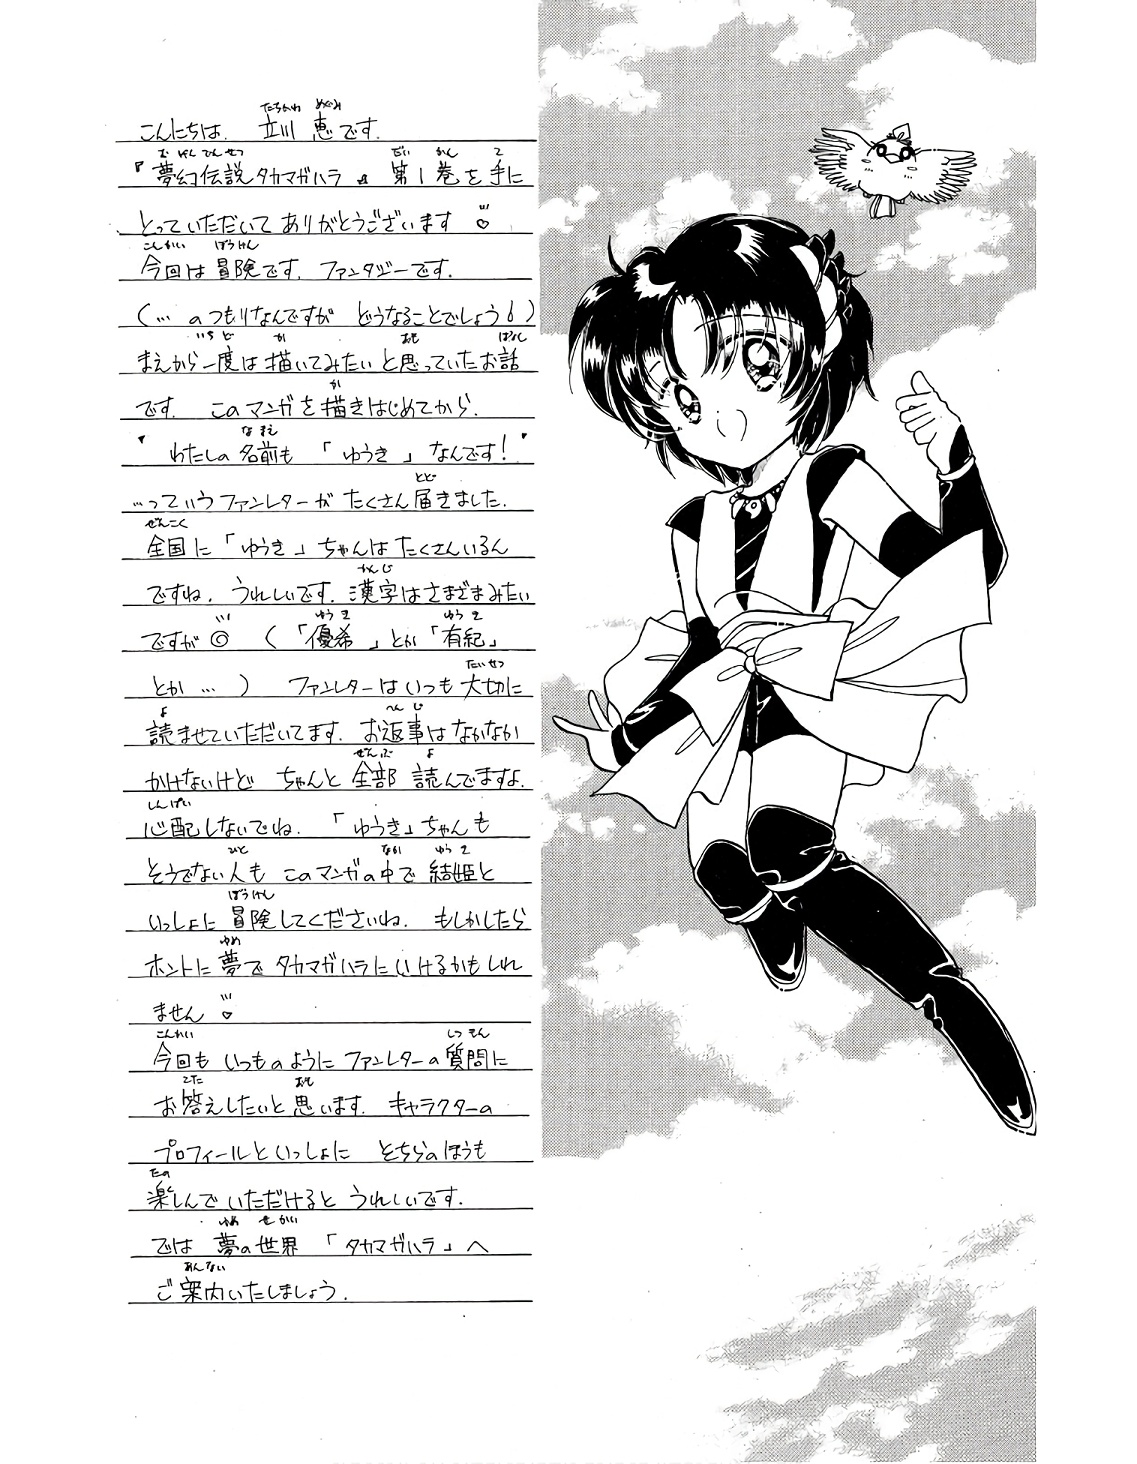 こんにちは. 立川 恵です.
『夢幻伝説タカマガハラ』 第1巻を手に
とっていただいて ありがとうございます♡
今回は冒険です. ファンタジーです.
(… のつもりなんですが どうなることでしょう)
まえから一度は描いてみたいと思っていたお話
です. このマンガを描きはじめてから.
"わたしの名前も「ゆうき」なんです!"
…っていうファンレターが たくさん届きました.
全国に「ゆうき」ちゃんは たくさんいるん
ですね. うれしいです. 漢字はさまざまみたい
ですが◎ (「優希」とか「有紀」
とか…) ファンレターはいつも大切に
読ませていただいてます. お返事はなかなか
かけないけど ちゃんと全部 読んでますよ.
心配しないでね. 「ゆうき」ちゃんも
そうでない人も このマンガの中で 結姫と
いっしょに冒険してくださいね. もしかしたら
ホントに夢で タカマガハラにいけるかもしれ
ません♡
今回も いつものように ファンレターの質問に
お答えしたいと思います. キャラクターの
プロフィールといっしょに どちらのほうも
楽しんでいただけると うれしいです.
では 夢の世界 「タカマガハラ」へ
ご案内いたしましょう.